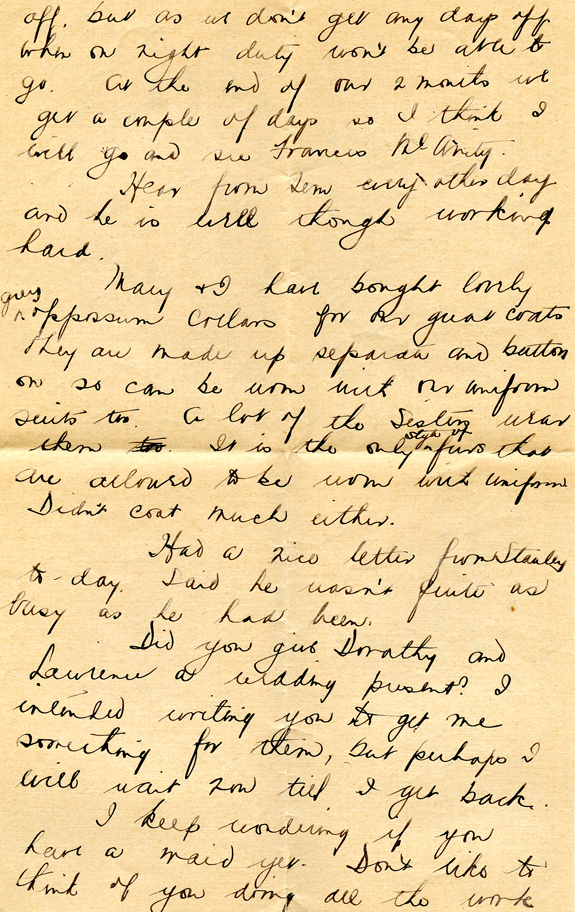 off, but as we don't get any days off
when on night duty won't be able to
go. At the end of our 2 months we
get a couple of days so I think I
will go and see Francis McAvity.
Hear from Lem every other day
and he is well though working
hard.
Mary & I have bought lovely
grey
oppossum collars for our great coats
They are made up separate and button
on so can be worn with our uniform
suits too. A lot of the Sisters wear
style of
them too. It is the only furs that
are allowed to be worn with uniform
Didn't cost much either.
Had a nice letter from Stanley
to-day. Said he wasn't quite as
busy as he had been.
Did you give Dorathy and
Lawrence a wedding present? I
intended writing you to get me
something for them, but perhaps I
will wait now till I get back.
I keep wondering if you
have a maid yet. Don't like to
think of you doing all the work